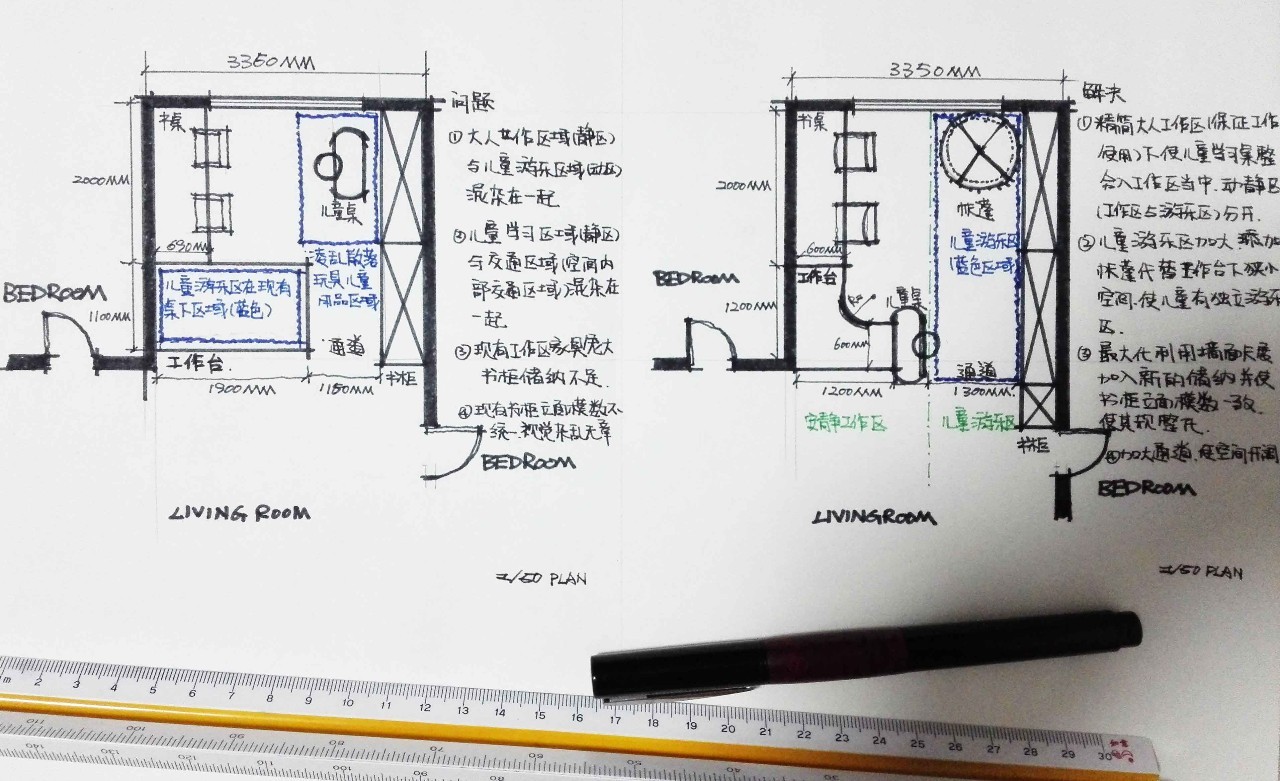 3350MM
书桌
2000MM
儿童桌
690MM
儿童游乐区在现有
桌下区域(蓝色)
凌乱散落
玩具儿童
用品区域
1100MM
BEDROOM
通道
工作台.
书柜
1900MM
1150MM
BEDROOM
LIVING ROOM
1/50 PLAN
问题
① 大人工作区域(静区)
与儿童游乐区域(动区)
混杂在一起
② 儿童学习区域(静区)
与交通区域(空间内
部交通区域)混杂在
一起
③ 现有工作区家具宽大
书柜储纳不足.
④ 现有书柜立面模数不
统一.视觉杂乱无章
3350MM
书桌
2000MM
帐蓬
儿童游乐区
(蓝色区域)
600MM
工作台
BEDROOM
1200MM
儿童桌
600MM
通道
1200MM
1300MM
安静工作区
儿童游乐区
书柜
BEDROOM
LIVINGROOM
1/50 PLAN
解决
① 精简大人工作区(保证工作
使用)下使儿童学习桌整
合入工作区当中.动静区
(工作区与游乐区)分开.
② 儿童游乐区加大添加
帐蓬代替工作台下狭小
空间.使儿童有独立游乐
区.
③ 最大化利用墙面长度
加入新的储纳并使
书柜立面模数一致.
使其规整化.
④加大通道.使空间开阔
cm 1 2 3 4 5 6 7 8 9 10 11 12 13 14 15 16 17 18 19 20 21 22 23 24 25 26 27 28 29 30
110 100 90 80 70 60 50 40